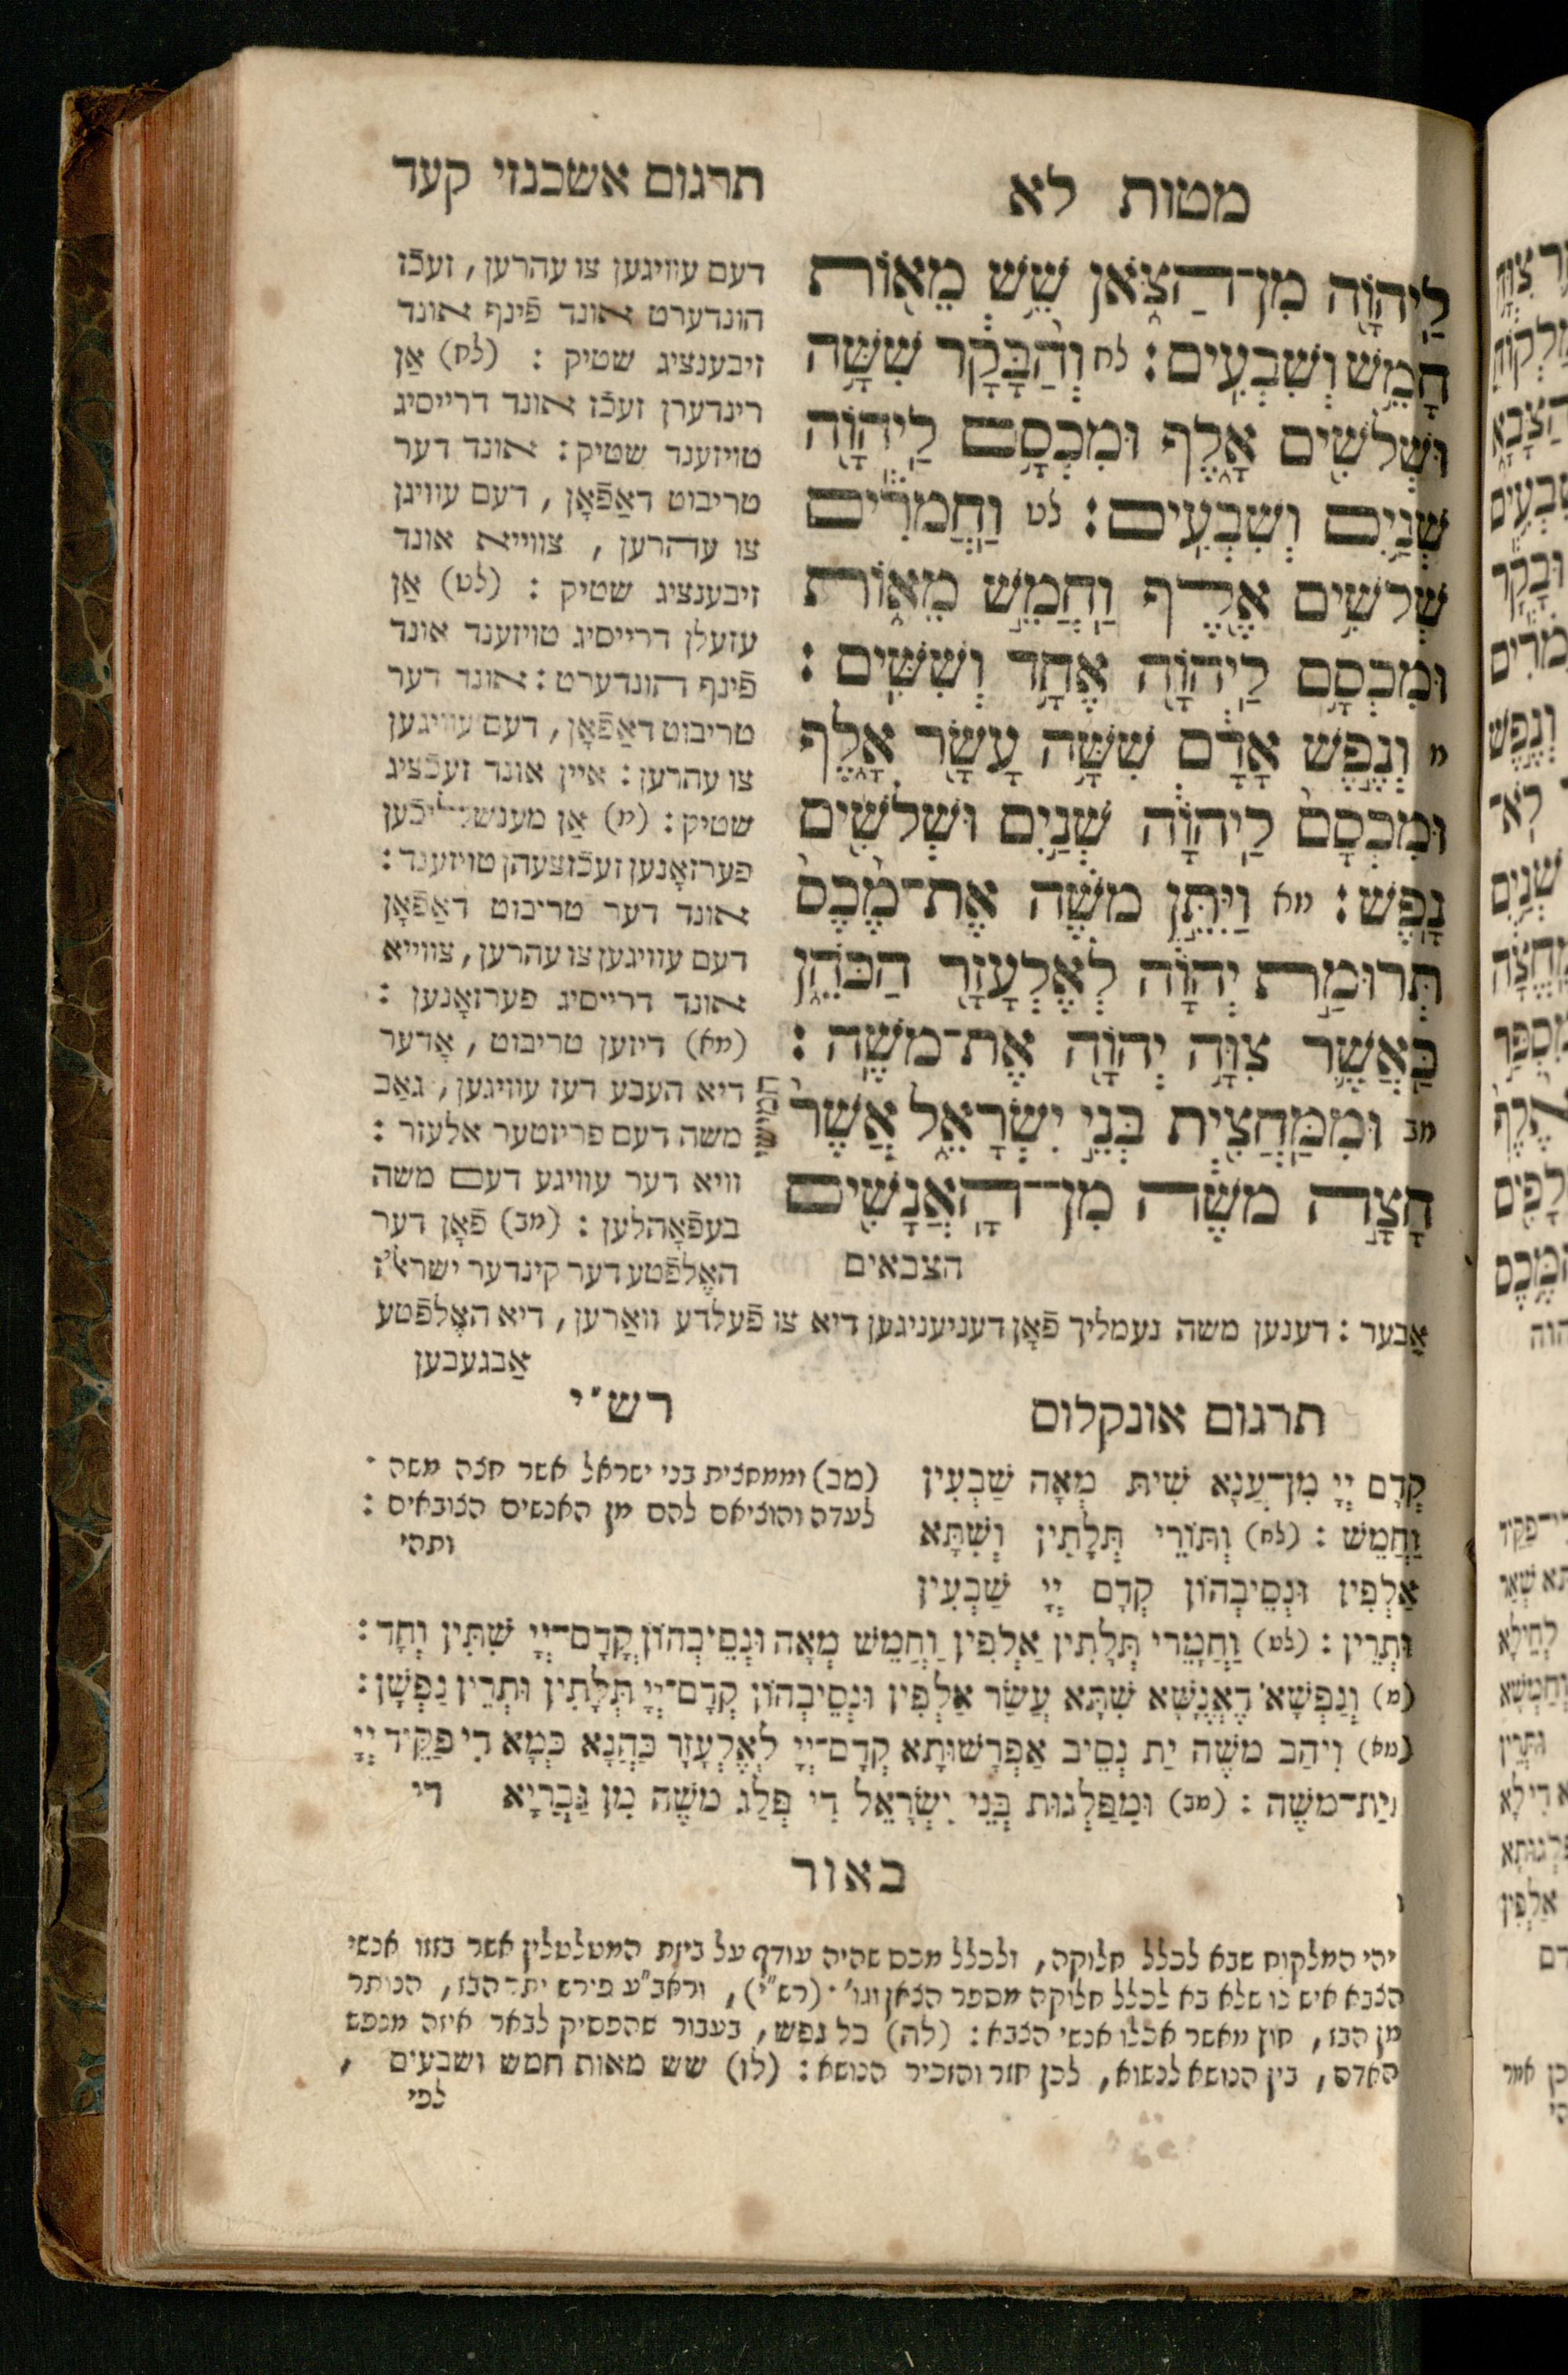 מטות לא
תרגום אשכנזי קעד
לַיהוָֹה מִן־הַצֹּאן שֵׁשׁ מֵאוֹת
חָמֵשׁ וְשִׁבְעִים: לח וְהַבָּקָר שִׁשָּׁה
וּשְׁלֹשִׁים אָלֶף וּמִכְסָם לַיהוָֹה
שְׁנַיִם וְשִׁבְעִים: לט וַחֲמֹרִים
שְׁלֹשִׁים אֶלֶף וַחֲמֵשׁ מֵאוֹת
וּמִכְסָם לַיהוָֹה אֶחָד וְשִׁשִּׁים:
מ וְנֶפֶשׁ אָדָם שִׁשָּׁה עָשָׂר אָלֶף
וּמִכְסָם לַיהוָֹה שְׁנַיִם וּשְׁלֹשִׁים
נָפֶשׁ: מא וַיִּתֵּן משֶׁה אֶת־מֶכֶס
תְּרוּמַת יְהוָֹה לְאֶלְעָזָר הַכֹּהֵן
כַּאֲשֶׁר צִוָּה יְהוָֹה אֶת־משֶׁה:
מב וּמִמַּחֲצִית בְּנֵי יִשְׂרָאֵל אֲשֶׁר
חָצָה משֶׁה מִן־הָאֲנָשִׁים
הצבאים
חמישי
דעם עוויגען צו עהרען, זעכֿז
הונדערט אונד פֿינף אונד
זיבענציג שטיק: (לח) אַן
רינדערן זעכֿז אונד דרייסיג
טויזענד שטיק: אונד דער
טריבוט דאַפֿאָן, דעם עוויגן
צו עהרען, צווייא אונד
זיבענציג שטיק: (לט) אַן
עזעלן דרייסיג טויזענד אונד
פֿינף הונדערט: אונד דער
טריבוט דאַפֿאָן, דעם עוויגען
צו עהרען: איין אונד זעכֿציג
שטיק: (מ) אַן מענשליכֿען
פערזאָנען זעכֿזצעהן טויזענד:
אונד דער טריבוט דאַפֿאָן
דעם עוויגען צו עהרען, צווייא
אונד דרייסיג פערזאָנען:
(מא) דיזען טריבוט, אָדער
דיא העבע דעז עוויגען, גאַב
משה דעם פריזטער אלעזר:
וויא דער עוויגע דעם משה
בעפֿאָהלען: (מב) פֿאָן דער
האֶלפֿטע דער קינדער ישראלז
אַבער: דענען משה נעמליך פֿאָן דעניעניגען דיא צו פֿעלדע וואַרען, דיא האֶלפֿטע
אַבגעבען
תרגום אונקלוס
קֳדָם יְיָ מִן־עָנָא שִׁית מְאָה שַׁבְעִין
וַחֲמֵשׁ: (לח) וְתוֹרֵי תְּלָתִין וְשִׁתָּא
אַלְפִין וּנְסֵיבְהוֹן קֳדָם יְיָ שַׁבְעִין
וּתְרֵין: (לט) וַחֲמָרֵי תְּלָתִין אַלְפִין וַחֲמֵשׁ מְאָה וּנְסֵיבְהוֹן קֳדָם־יְיָ שִׁתִּין וְחָד:
(מ) וְנַפְשָׁא דֶאֱנָשָׁא שִׁתָּא עֲשַׂר אַלְפִין וּנְסֵיבְהוֹן קֳדָם־יְיָ תְּלָתִין וּתְרֵין נַפְשָׁן:
(מא) וִיהַב משֶׁה יַת נְסֵיב אַפְרָשׁוּתָא קֳדָם־יְיָ לְאֶלְעָזָר כַּהֲנָא כְּמָא דִי פַקֵּיד יְיָ
יַת־משֶׁה: (מב) וּמִפַּלְגוּת בְּנֵי יִשְׂרָאֵל דִי פְלַג משֶׁה מִן גֻּבְרַיָא
די
רש"י
(מב) וממחצית בני ישראל אשר חצה משה
לעדה והוציאם להם מן האנשים הצובאים:
ותהי
באור
יהי המלקוח שבא לכלל חלוקה, ולכלל מכס שהיה עודף על ביזת המטלטלין אשר בזזו אנשי
הצבא איש לו שלא בא לכלל חלוקה מספר הצאן וגו' (רש"י), וראב"ע פירש יתר הבז, הנותר
מן הבז, חוץ מאשר אכלו אנשי הצבא: (לה) כל נפש, בעבור שהפסיק לבאר איזה מנפש
האדם, בין הנושא לנשוא, לכן חזר והזכיר הנושא: (לו) שש מאות חמש ושבעים,
לפי